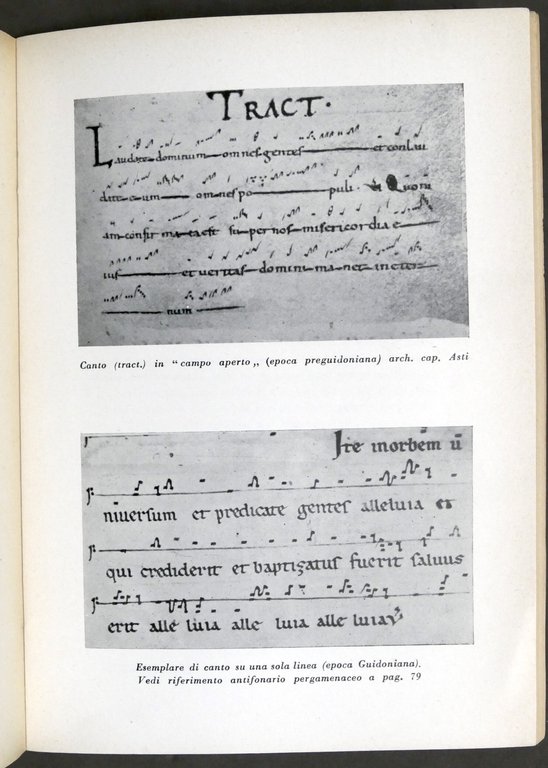 TRACT.
Laudate dominum omnes gentes et conlau
date eum omnes po puli. Quoni
am confir mata est super nos misericordia e
ius et veritas domini ma net in eter
num
Canto (tract.) in “campo aperto„ (epoca preguidoniana) arch. cap. Asti
Ite in orbem u
niuersum et predicate gentes alleluia et
qui crediderit et baptizatus fuerit saluus
erit alle luia alle luia alle luia
Esemplare di canto su una sola linea (epoca Guidoniana).
Vedi riferimento antifonario pergamenaceo a pag. 79